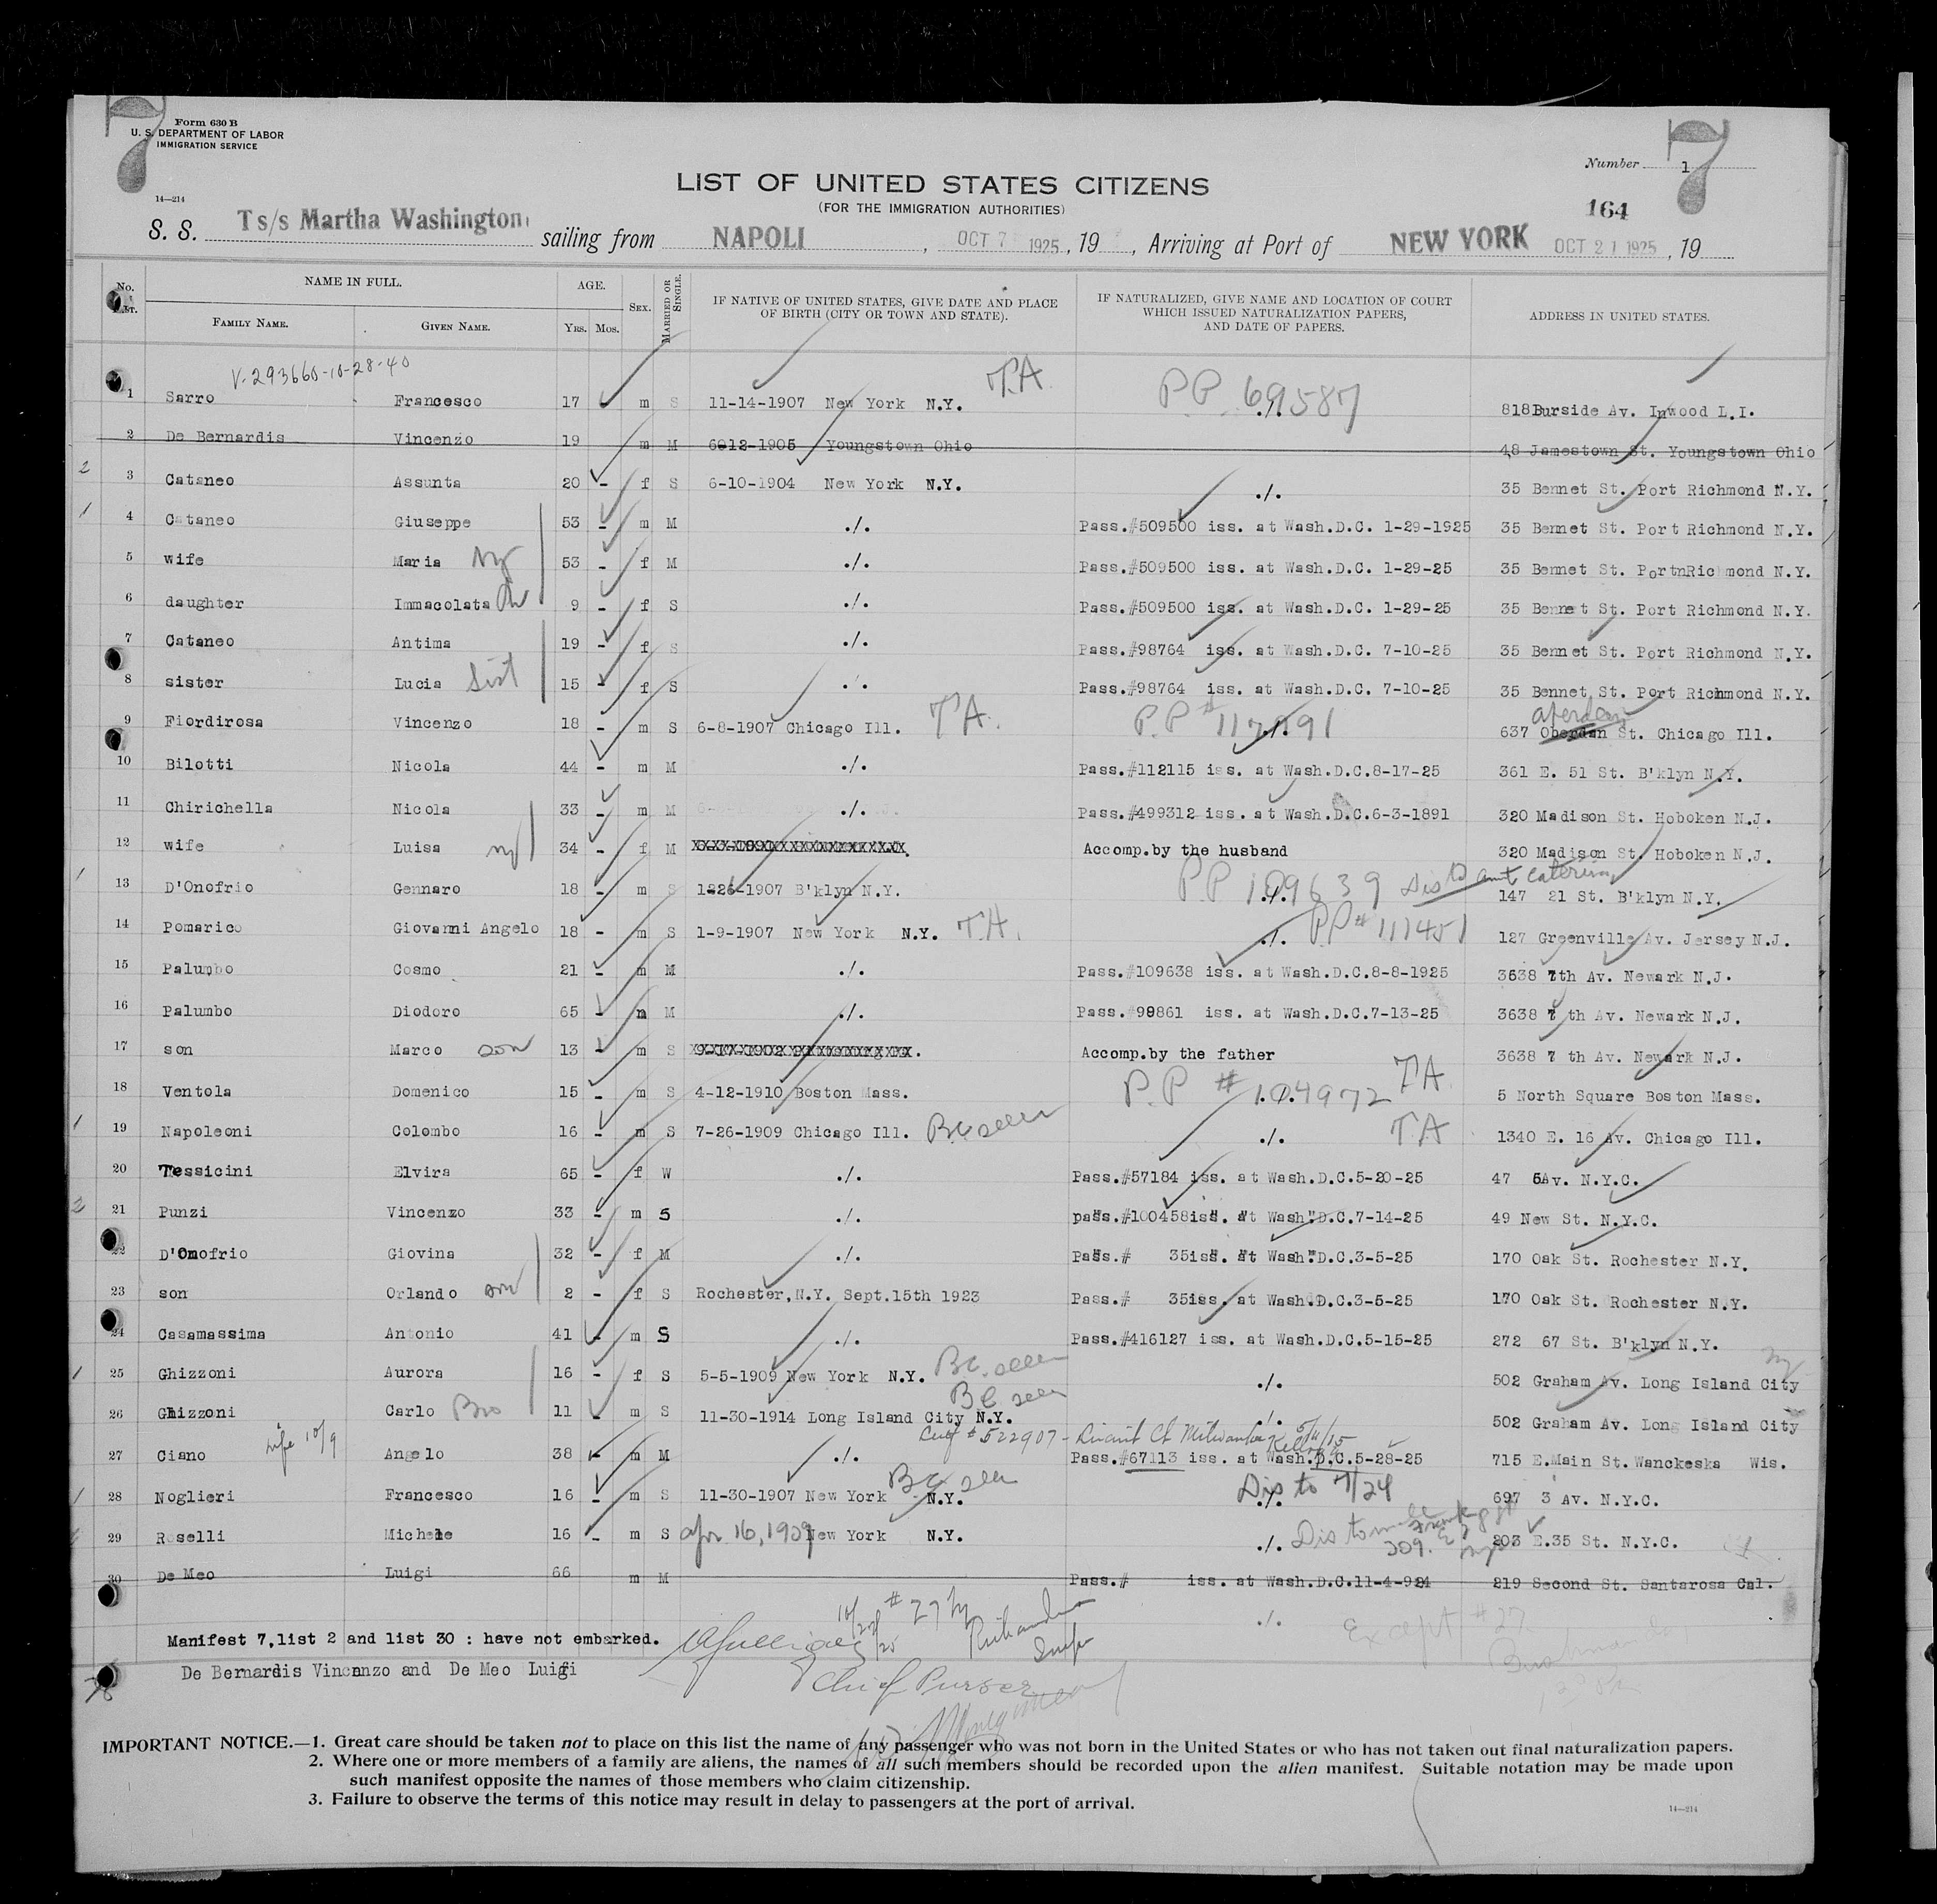 7
Form 630 B
U. S. DEPARTMENT OF LABOR
IMMIGRATION SERVICE
14—214
Number 1
7
LIST OF UNITED STATES CITIZENS
(FOR THE IMMIGRATION AUTHORITIES)
164
S. S. Ts/s Martha Washington sailing from NAPOLI, OCT 7 1925, 19 , Arriving at Port of NEW YORK OCT 21 1925, 19
No. NAME IN FULL. AGE. SEX. MARRIED OR SINGLE. IF NATIVE OF UNITED STATES, GIVE DATE AND PLACE OF BIRTH (CITY OR TOWN AND STATE). IF NATURALIZED, GIVE NAME AND LOCATION OF COURT WHICH ISSUED NATURALIZATION PAPERS, AND DATE OF PAPERS. ADDRESS IN UNITED STATES.
FAMILY NAME. GIVEN NAME. YRS. MOS.
V-293660-10-28-40
1 Sarro Francesco 17 - m S 11-14-1907 New York N.Y. T.A. PP 69587 ./. 818Burside Av. Inwood L.I.
2 De Bernardis Vincenzo 19 m M 6012-1905 Youngstown Ohio 48 Jamestown St. Youngstown Ohio
2 3 Cataneo Assunta 20 - f S 6-10-1904 New York N.Y. ./. 35 Bennet St. Port Richmond N.Y.
1 4 Cataneo Giuseppe 53 - m M ./. Pass.#509500 iss. at Wash.D.C. 1-29-1925 35 Bennet St. Port Richmond N.Y.
5 wife Maria 53 - f M ./. Pass.#509500 iss. at Wash.D.C. 1-29-25 35 Bennet St. PortnRichmond N.Y.
6 daughter Immacolata 9 - f S ./. Pass.#509500 iss. at Wash.D.C. 1-29-25 35 Bennet St. Port Richmond N.Y.
7 Cataneo Antima 19 - f S ./. Pass.#98764 iss. at Wash.D.C. 7-10-25 35 Bennet St. Port Richmond N.Y.
8 sister Lucia Sist 15 - f S ./. Pass.#98764 iss. at Wash.D.C. 7-10-25 35 Bennet St. Port Richmond N.Y.
9 Fiordirosa Vincenzo 18 - m S 6-8-1907 Chicago Ill. T.A. PP # ./. 637 Oberdan Aperdeen St. Chicago Ill.
10 Bilotti Nicola 44 - m M ./. Pass.#112115 iss. at Wash.D.C.8-17-25 361 E. 51 St. B'klyn N.Y.
11 Chirichella Nicola 33 - m M ./. Pass.#499312 iss. at Wash.D.C.6-3-1891 320 Madison St. Hoboken N.J.
12 wife Luisa 34 - f M Accomp.by the husband 320 Madison St. Hoboken N.J.
1 13 D'Onofrio Gennaro 18 - m S 1226-1907 B'klyn N.Y. PP 109639 ./. 147 21 St. B'klyn N.Y.
14 Pomarico Giovanni Angelo 18 - m S 1-9-1907 New York N.Y. T.A. ./. PP# 111451 127 Greenville Av. Jersey N.J.
15 Palumbo Cosmo 21 - m M ./. Pass.#109638 iss. at Wash.D.C.8-8-1925 3638 7th Av. Newark N.J.
16 Palumbo Diodoro 65 - m M ./. Pass.#99861 iss. at Wash.D.C.7-13-25 3638 7 th Av. Newark N.J.
17 son Marco son 13 - m S Accomp.by the father 3638 7 th Av. Newark N.J.
18 Ventola Domenico 15 - m S 4-12-1910 Boston Mass. P.P # 104972 TA 5 North Square Boston Mass.
1 19 Napoleoni Colombo 16 - m S 7-26-1909 Chicago Ill. BC seen ./. T.A 1340 E. 16 Av. Chicago Ill.
20 Tessicini Elvira 65 - f W ./. Pass.#57184 iss. at Wash.D.C.5-20-25 47 5Av. N.Y.C.
2 21 Punzi Vincenzo 33 - m S ./. pass.#100458iss. at Wash.D.C.7-14-25 49 New St. N.Y.C.
22 D'Onofrio Giovina 32 - f M ./. Pass.# 35iss. at Wash.D.C.3-5-25 170 Oak St. Rochester N.Y.
23 son Orlando son 2 - f S Rochester,N.Y. Sept.15th 1923 Pass.# 35iss. at Wash.D.C.3-5-25 170 Oak St. Rochester N.Y.
24 Casamassima Antonio 41 - m S ./. Pass.#416127 iss. at Wash.D.C.5-15-25 272 67 St. B'klyn N.Y.
1 25 Ghizzoni Aurora 16 - f S 5-5-1909 New York N.Y. BC. seen ./. 502 Graham Av. Long Island City
26 Ghizzoni Carlo Bro 11 - m S 11-30-1914 Long Island City N.Y. BC seen ./. 502 Graham Av. Long Island City
27 Ciano wife 10/9 Angelo 38 - m M ./. # 522907 - Circuit Ct Pass.#67113 iss. at Wash.D.C.5-28-25 715 E.Main St.Wanckeska Wis.
1 28 Noglieri Francesco 16 - m S 11-30-1907 New York N.Y. BC seen Dis to ./. 697 3 Av. N.Y.C.
29 Roselli Michele 16 - m S Apr 16, 1909 New York N.Y. ./. Dis to 203 E.35 St. N.Y.C.
30 De Meo Luigi 66 m M Pass.# iss. at Wash.D.C.11-4-924 219 Second St. Santarosa Cal.
./. Except #27
Manifest 7,list 2 and list 30 : have not embarked.
De Bernardis Vincenzo and De Meo Luigi
Chief Purser
IMPORTANT NOTICE.—1. Great care should be taken not to place on this list the name of any passenger who was not born in the United States or who has not taken out final naturalization papers.
2. Where one or more members of a family are aliens, the names of all such members should be recorded upon the alien manifest. Suitable notation may be made upon
such manifest opposite the names of those members who claim citizenship.
3. Failure to observe the terms of this notice may result in delay to passengers at the port of arrival.
14—214